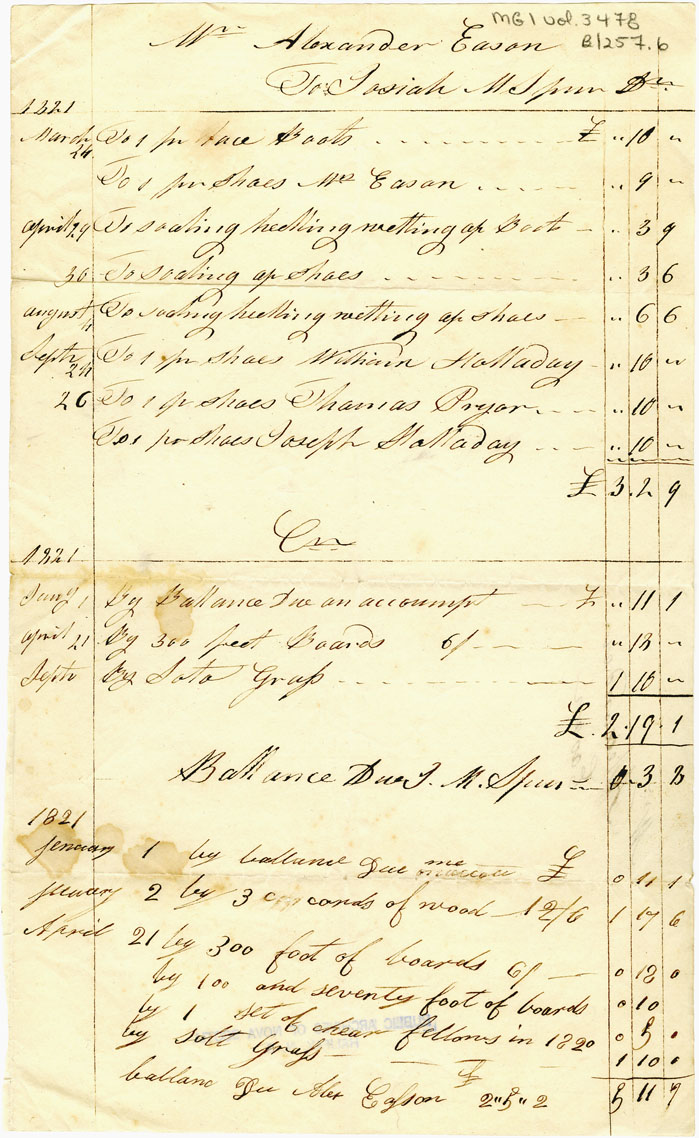 MG1 vol. 3478
B1257.6
Mr Alexander Eason
To Josiah M Spurr Dr
1821
March 24 To 1 pr Boots £ " 10 "
To 1 pr Shoes Mrs Eason " 9 "
april 29 To soaling heelling welting ap Boots " 3 9
30 To soaling ap shoes " 3 6
august 4 To soaling heelling welting ap shoes " 6 6
Septr 24 To 1 pr Shoes William Holladay " 10 "
26 To 1 pr Shoes Thomas Pryor " 10 "
To 1 pr Shoes Joseph Holladay " 10 "
£ 3. 2 9
Cr
1821
Jany 1 By Ballance Due on accoumpt £ " 11 1
april 21 By 300 feet Boards 6/ " 18 "
Septr By Grass 1 10 "
£ 2. 19 1
Ballance Due J. M. Spurr 0. 3 8
1821
Jenuary 1 by ballance Due me £ 0 11 1
Jenuary 2 by 3 conds of wood 12/6 1 17 6
April 21 by 300 foot of boards 6/ 0 18 0
by 100 and seventy foot of boards 0 10
by 1 set of fellows in 1820 0 5 0
by Solt Grass 1 10 0
ballanc Due Alex Easson £ 2"5"2 5 11 7